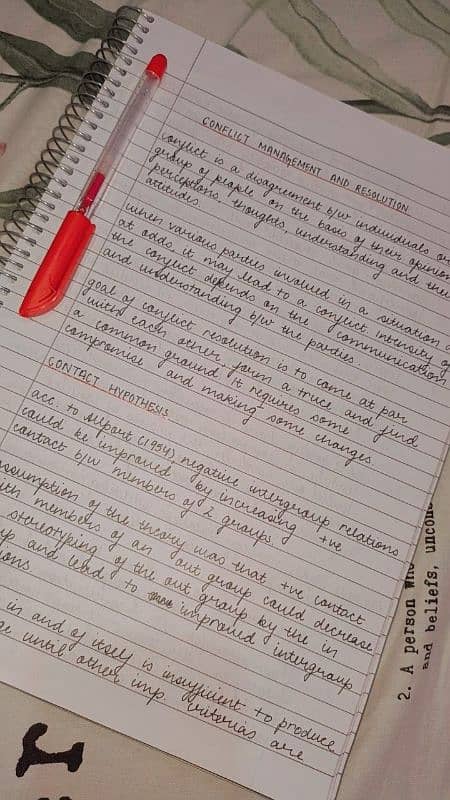 CONFLICT MANAGEMENT AND RESOLUTION
conflict is a disagreement b/w individuals or
group of people on the basis of their opinions
perceptions, thoughts, understanding and their
attitudes.
when various parties involved in a situation
at odds it may lead to a conflict. intensity of
the conflict depends on the communication
and understanding b/w the parties
goal of conflict resolution is to come at par
with each other, form a truce and find
a common ground. It requires some
compromise and making some changes
CONTACT HYPOTHESIS
acc. to Allport (1954), negative intergroup relations
could be improved by increasing +ve
contact b/w members of 2 groups.
assumption of the theory was that +ve contact
with members of an out group could decrease
stereotyping of the out group by the in
and lead to improved intergroup
in and of itself is insufficient to produce
until other imp. criterias are
2. A person who
and beliefs, uncon
r